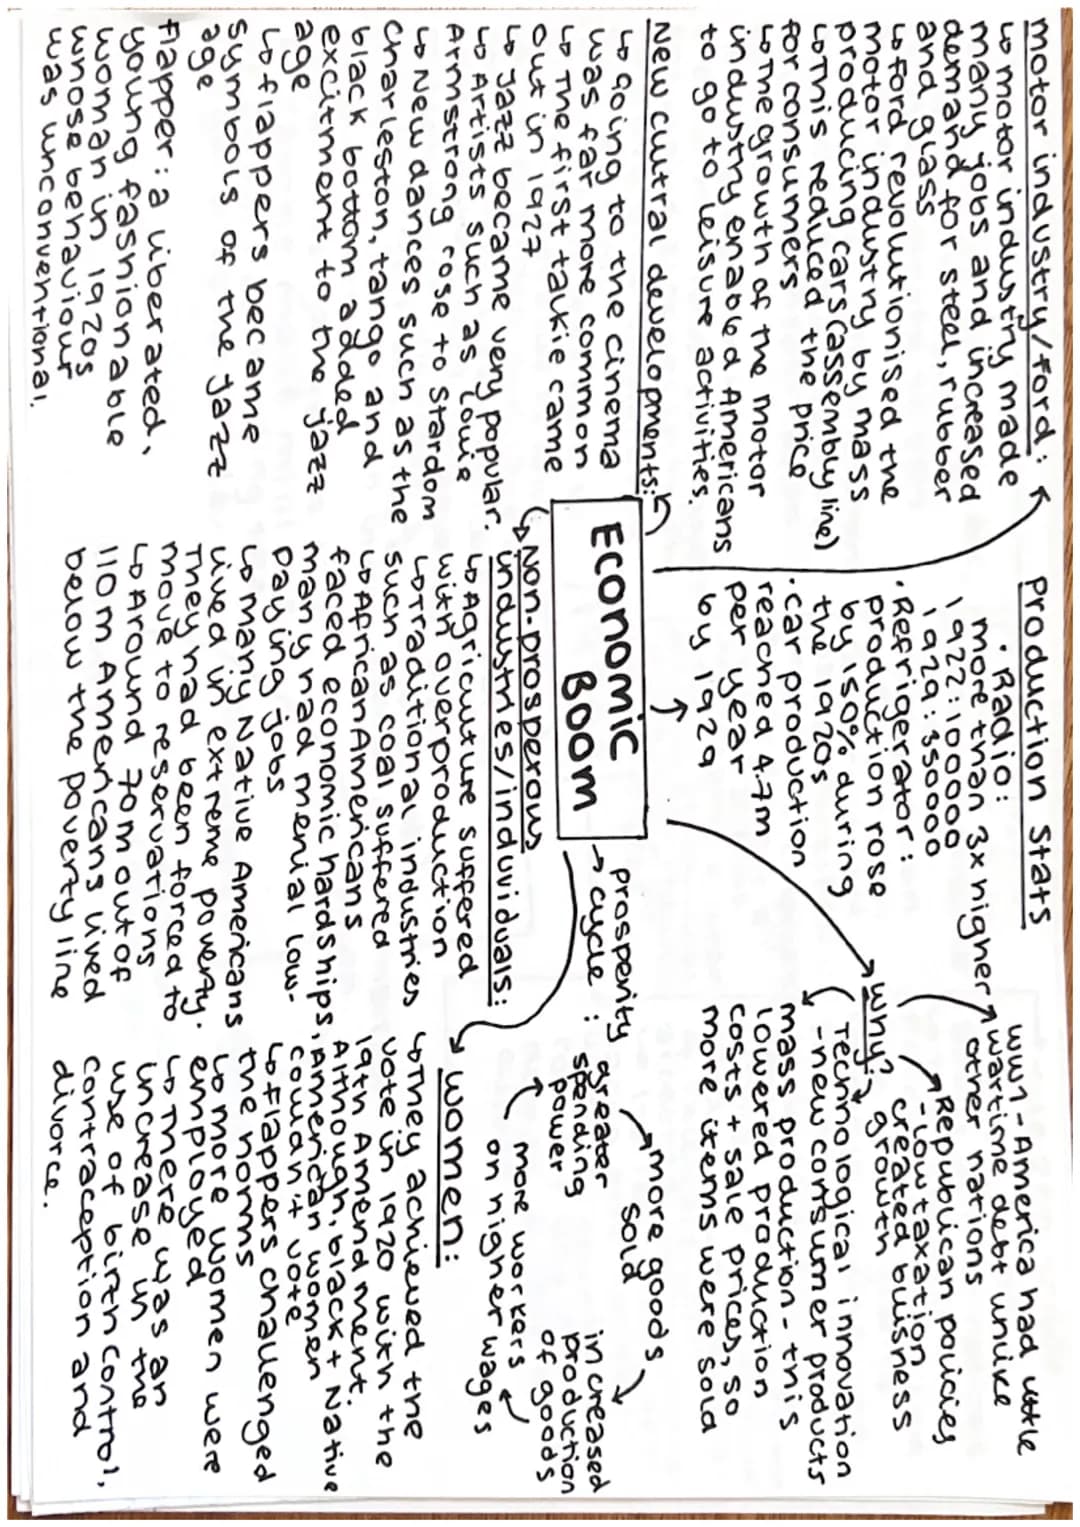 motor industry/ford:
↳ motor industry made
many jobs and increased
demand for steel, rubber
and glass
↳ ford revolutionised the
motor industry by mass
producing cars (assembly line)
↳ This reduced the price
for consumers
↳ The growth of the motor
industry enabled Americans
to go to leisure activities.
Production Stats
• Radio:
more than 3x higher
1922: 100000
1929: 350000
• Refrigerator:
production rose
by 150% during
the 1920s
• car production
reached 4.7m
per year
by 1929
WW1 - America had little
wartime debt unlike
other nations
Republican policies
- low taxation
created buisness
growth
Why?
Technological innovation
- new consumer products
mass production - this
lowered production
costs + sale prices, so
more items were sold
New cultral developments:
↳ Going to the cinema
was far more common
↳ The first talkie came
out in 1927
↳ Jazz became very popular.
↳ Artists such as Louie
Armstrong rose to stardom
↳ New dances such as the
Charleston, tango and
black bottom added
excitment to the jazz
age
↳ flappers became
symbols of the jazz
age
Flapper: a liberated,
young fashionable
woman in 1920s
whose behaviour
was unconventional.
Economic
Boom
prosperity
cycle:
more goods
sold
increased
production
of goods
more workers
on higher wages
greater
spending
power
Non-prosperous
industries/induviduals:
↳ Agriculture suffered
with overproduction
↳ traditional industries
such as coal suffered
↳ African Americans
faced economic hardships,
many had menial low-
paying jobs
↳ many Native Americans
lived in extreme poverty.
They had been forced to
move to reservations
↳ Around 70m out of
110m Americans lived
below the poverty line
women:
↳ They achieved the
vote in 1920 with the
19th Amendment.
Although, black + Native
American women
couldn't vote
↳ Flappers challenged
the norms
↳ more women were
employed
↳ There was an
increase in the
use of birth control,
contraception and
divorce.